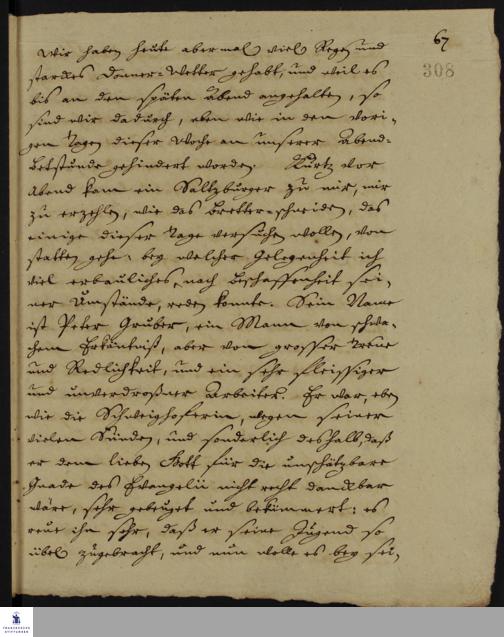 67
308
Wir haben heute abermal viel Regen und
starckes Donner-Wetter gehabt, und weil es
bis an den späten Abend angehalten, so
sind wir dadurch, eben wie in den vori-
gen Tagen dieser Woche an unserer Abend-
Betstunde gehindert worden. Kurtz vor
Abend kam ein Saltzburger zu mir, mir
zu erzehlen, wie das Bretter-schneiden, das
einige dieser Tage versuchen wollen, von
statten gehe: bey welcher Gelegenheit ich
viel erbauliches, nach Beschaffenheit sei-
ner Umstände, reden konnte. Sein Name
ist Peter Gruber, ein Mann von schwa-
chem Erkäntniß, aber von grosser Treue
und Redlichkeit, und ein sehr fleissiger
und unverdroßner Arbeiter. Er war, eben
wie die Schweighoferin, wegen seiner
vielen Sünden, und sonderlich deshalb, daß
er dem lieben Gott für die unschätzbare
Gnade des Evangelii nicht recht danckbar
wäre, sehr gebeuget und bekümmert: es
reue ihn sehr, daß er seine Jugend so
übel zugebracht, und nun wolle es bey sei-
FRANCKESCHE
STIFTUNGEN